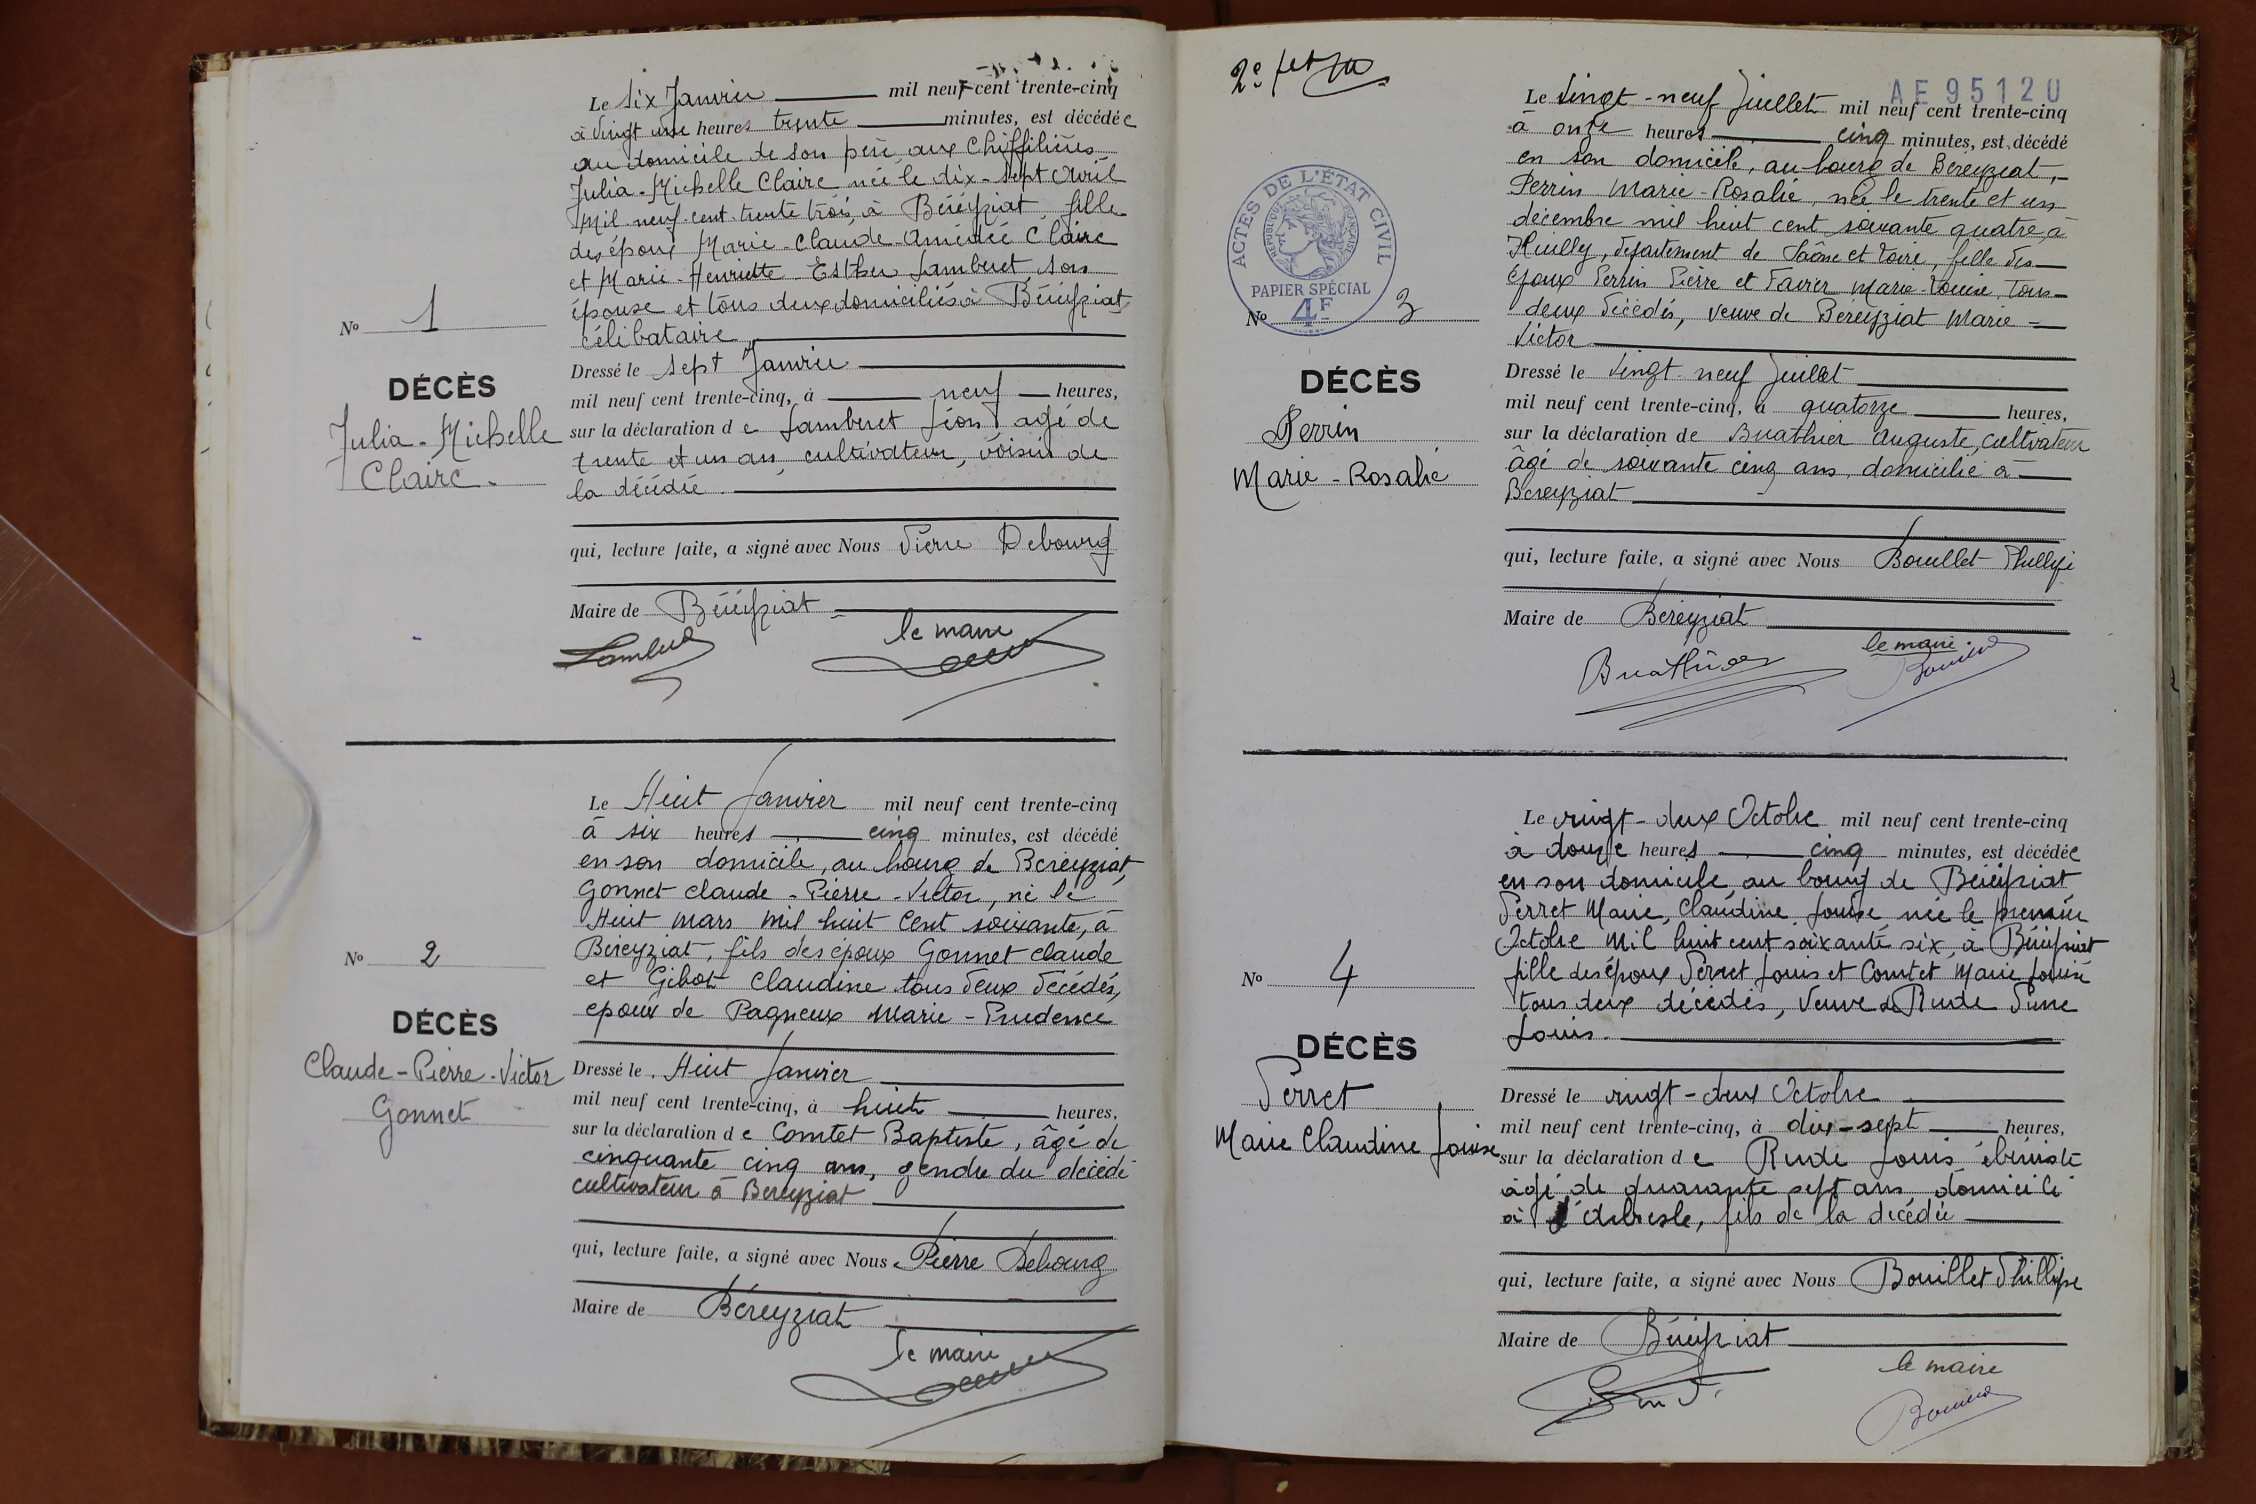 Le six Janvier mil neuf cent trente-cinq
à vingt une heures trente minutes, est décédée
au domicile de son père, aux Chiffilières
Julia-Michelle Claire née le dix-sept Avril
mil-neuf-cent-trente trois, à Béréyziat, fille
des époux Marie-Claude Amédée Claire
et Marie-Henriette-Esther Lamberet son
épouse et tous deux domiciliés à Béréyziat,
célibataire
No 1
DÉCÈS
Julia-Michelle
Claire.
Dressé le sept Janvier
mil neuf cent trente-cinq, à neuf heures,
sur la déclaration de Lamberet Léon agé de
trente et un an, cultivateur, voisin de
la décédée.
qui, lecture faite, a signé avec Nous Pierre Debourg
Maire de Béréyziat
le maire
Le Huit Janvier mil neuf cent trente-cinq
à six heures cinq minutes, est décédé
en son domicile, au bourg de Bereyziat,
Gonnet Claude-Pierre-Victor, né le
Huit mars mil huit cent soixante, à
Béreyziat, fils des époux Gonnet Claude
et Gibot Claudine tous deux décédés,
époux de Pagneux Marie-Prudence
No 2
DÉCÈS
Claude-Pierre-Victor
Gonnet
Dressé le Huit Janvier
mil neuf cent trente-cinq, à huit heures,
sur la déclaration de Comtet Baptiste, âgé de
cinquante cinq ans, gendre du décédé
cultivateur à Bereyziat
qui, lecture faite, a signé avec Nous Pierre Debourg
Maire de Béreyziat
Le maire
2e
AE95120
Le Vingt-neuf Juillet mil neuf cent trente-cinq
à onze heures cinq minutes, est décédé
en son domicile, au bourg de Bereyziat,
Perrin Marie-Rosalie, née le trente et un
décembre mil huit cent soixante quatre, à
Huilly, département de Saône et Loire, fille des
Époux Perrin Pierre et Favier Marie-Louise, tous
deux décédés, veuve de Béreyziat Marie-
Victor
ACTES DE L'ÉTAT CIVIL
RÉPUBLIQUE FRANÇAISE
PAPIER SPÉCIAL
4F
No 3
DÉCÈS
Perrin
Marie-Rosalie
Dressé le Vingt-neuf Juillet
mil neuf cent trente-cinq, à quatorze heures,
sur la déclaration de Buathier Auguste, cultivateur
âgé de soixante cinq ans, domicilié à
Bereyziat
qui, lecture faite, a signé avec Nous Bouillet Phillipe
Maire de Béreyziat
le maire
Buathier
Le vingt-deux Octobre mil neuf cent trente-cinq
à douze heures cinq minutes, est décédée
en son domicile au bourg de Béréyziat
Perret Marie, Claudine Louise née le premier
Octobre mil huit cent soixante six, à Béréyziat
fille des époux Perret Louis et Comtet Marie Louise
tous deux décédés, Veuve de Rude Pierre
Louis.
No 4
DÉCÈS
Perret
Marie Claudine Louise
Dressé le vingt-deux Octobre
mil neuf cent trente-cinq, à dix-sept heures,
sur la déclaration de Rude Louis ébéniste
âgé de quarante sept ans domicilié
à l'Arbresle, fils de la décédée
qui, lecture faite, a signé avec Nous Bouillet Phillipe
Maire de Béréyziat
le maire